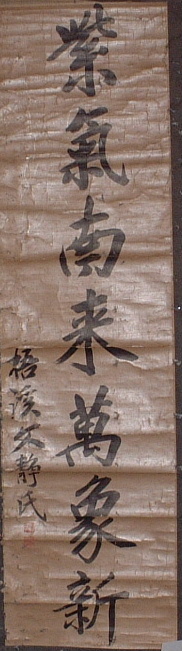 紫氣南来萬象新
梧溪文靜氏